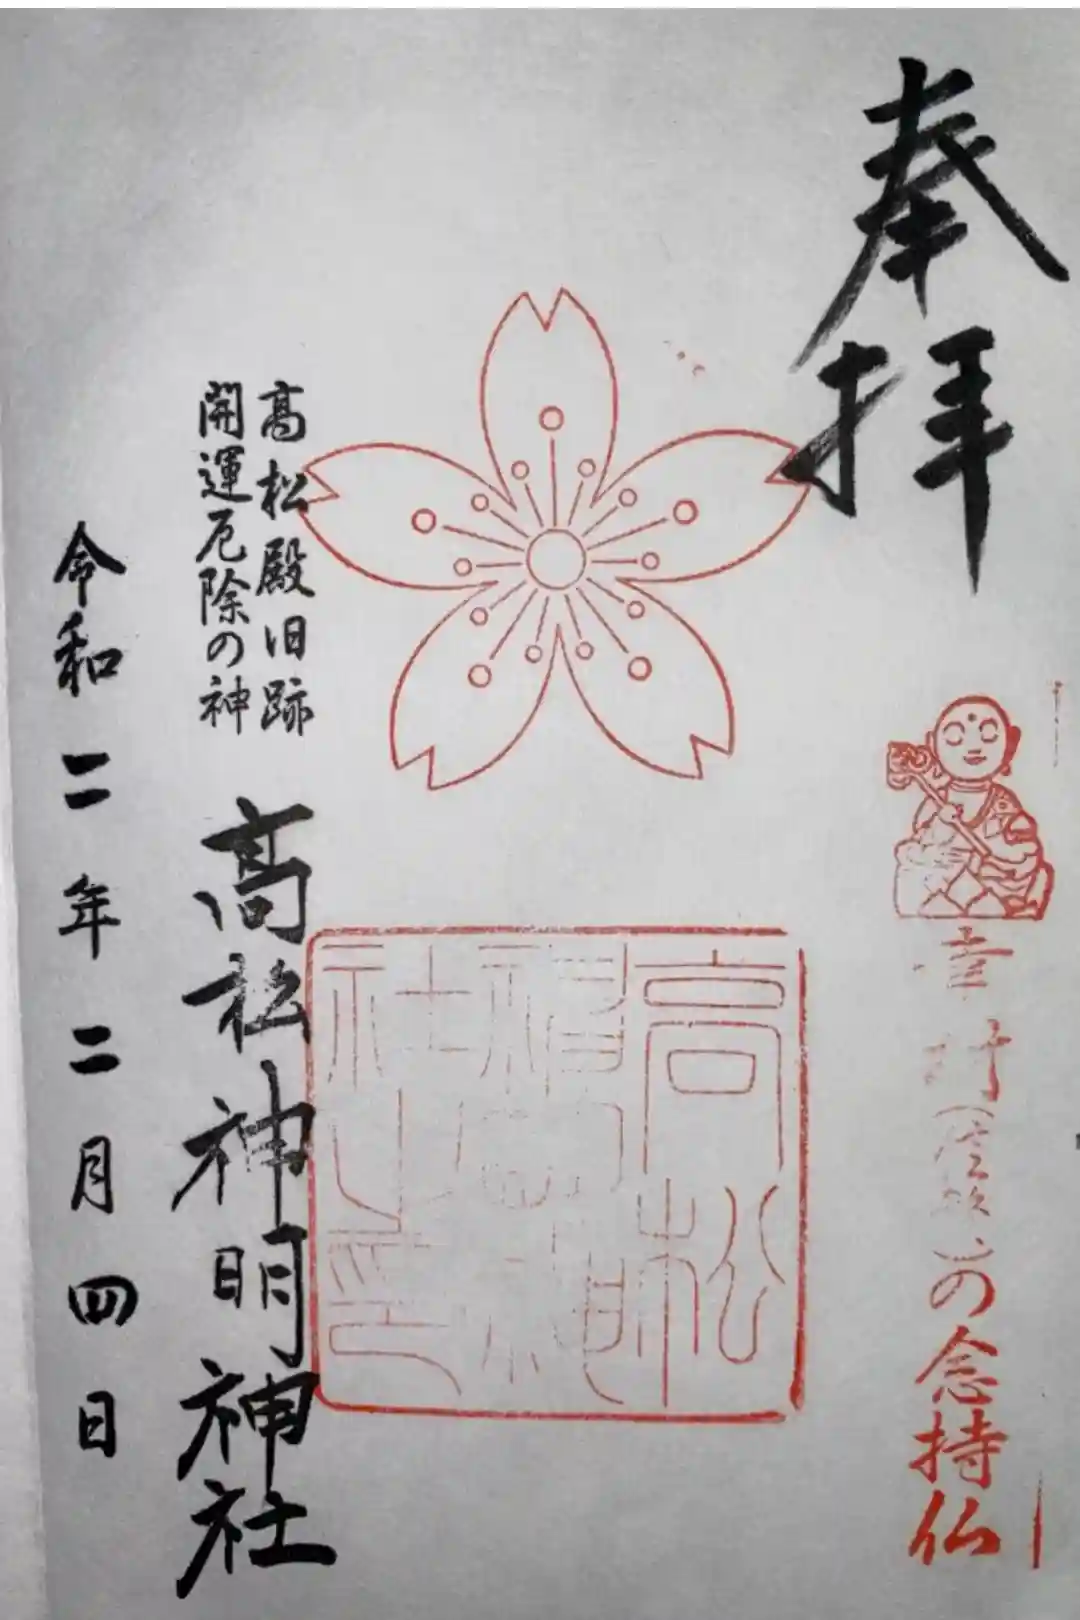 奉拝
幸村
の念持仏
高松
神明神
社之印
高松殿旧跡
開運厄除の神
高松神明神社
令和二年二月四日